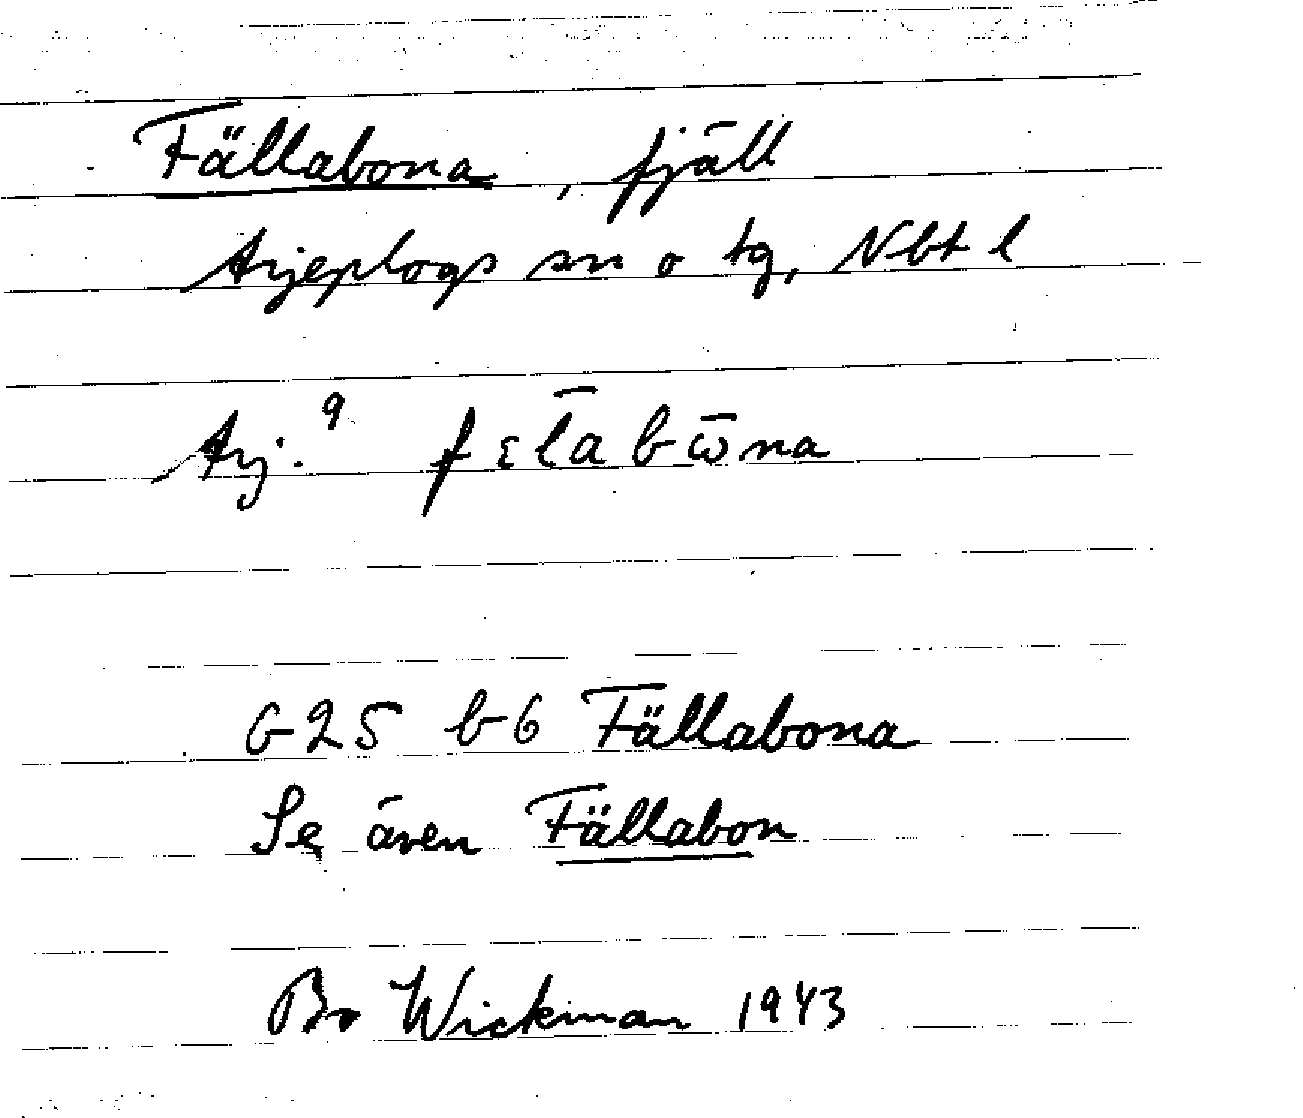 Fällabona, fjäll
Arjeplogs sn o tg, Nbt l
Arj. 9 fɛl̄abω̄na
G25 b6 Fällabona
Se även Fällabon
Bo Wickman 1943